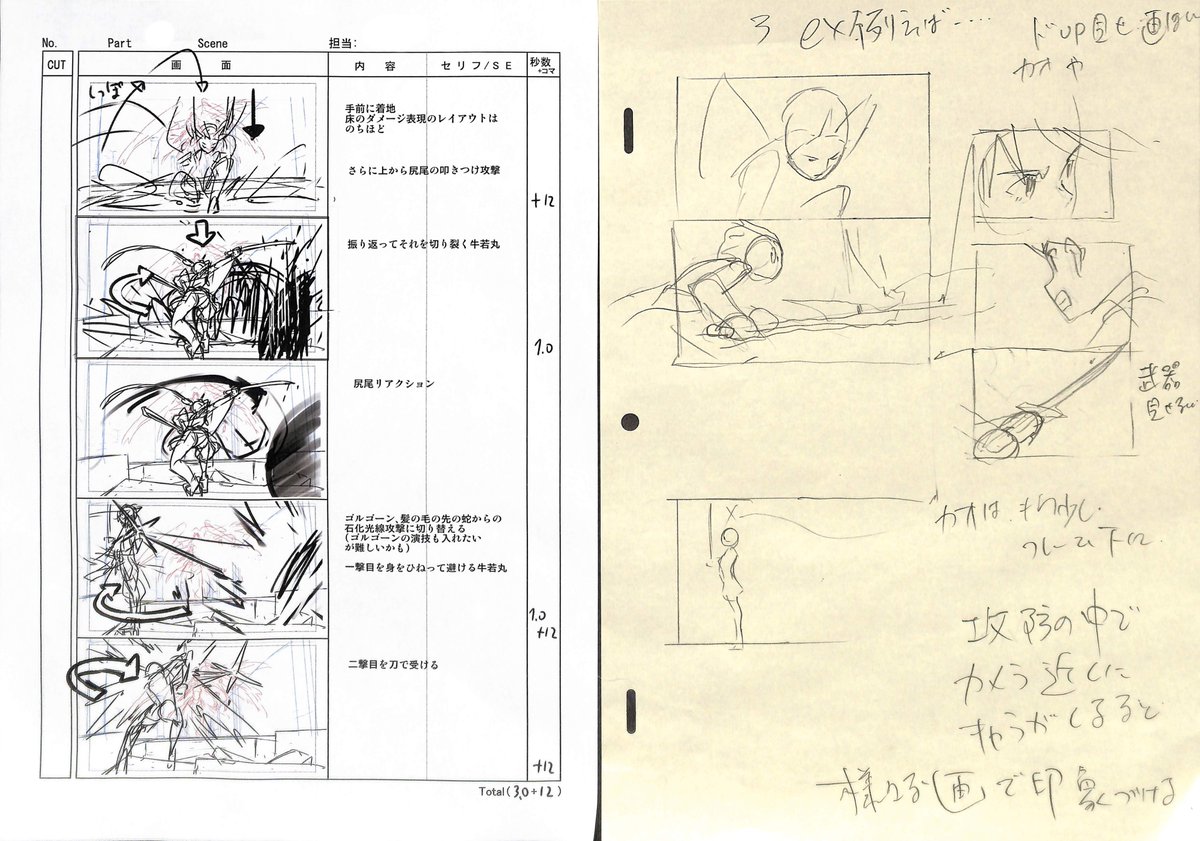 No. Part Scene 担当:
CUT 画面 内容 セリフ/SE 秒数
+コマ
しっぽ
手前に着地
床のダメージ表現のレイアウトは
のちほど
さらに上から尻尾の叩きつけ攻撃
+12
振り返ってそれを切り裂く牛若丸
1.0
尻尾リアクション
ゴルゴーン、髪の毛の先の蛇からの
石化光線攻撃に切り替える
(ゴルゴーンの演技も入れたい
が難しいかも)
一撃目を身をひねって避ける牛若丸
1.0
+12
二撃目を刀で受ける
+12
Total(3.0+12)
3 ex 例えば……
ドUP見せ画
カオや
武器
見せ
カオは
フレーム下に
攻防の中で
カメラ近くに
キャラがくると
様々な画で印象づける